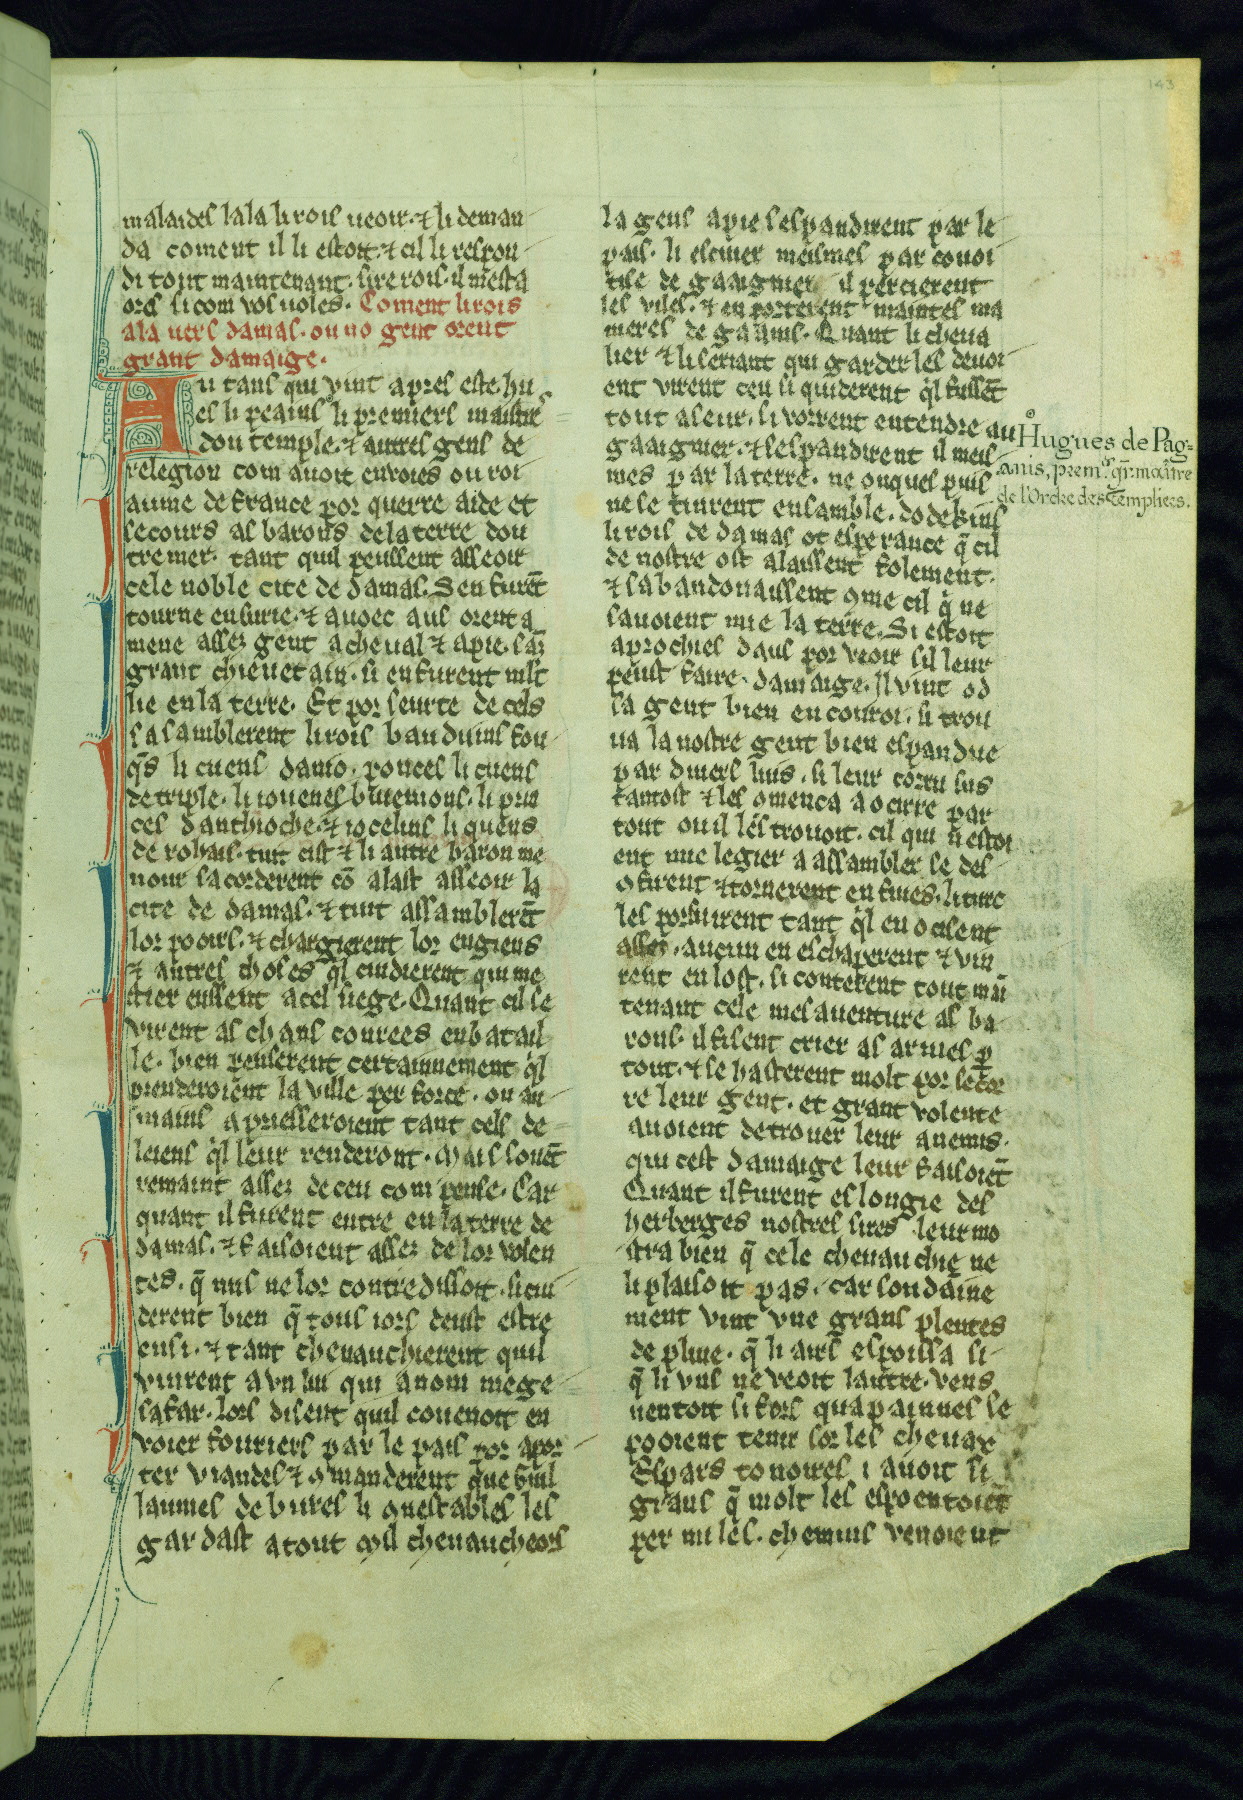 143
malades lala li rois ueoir · ⁊ li deman
da coment il li estoit · ⁊ cil li respon
di tout maintenant · sire rois · il mesta
ores si com vos uoles · Coment li rois
ala uers damas · ou no gent orent
grant damaige ·
An tans qui vint apres este · hu
es li peains li premiers maistre
dou temple · ⁊ autres gens de
relegion com auoit enuoies ou roi
aume de france por querre aide et
secours as barons de la terre dou
tremer · tant quil peussent asseoir
cele noble cite de damas · Sen furēt
tourne en surie · ⁊ auoec aus orent a
mene assez gent a cheual ⁊ a pie · sāz
grant chieuetain · si en furent mlt
lie en la terre · Et por seurte de cels
sasamblerent li rois bauduins fou
q̄s li cuens daino · poncel li cuens
de triple · li iouenes buiemons · li prin
ces danthioche · ⁊ iocelins li quens
de rohais · tuit cist ⁊ li autre baron me
nour sacorderent cō alast asseoir la
cite de damas · ⁊ tuit assamblerēt
lor pooirs · ⁊ chargierent lor engiens
⁊ autres choses q̄l cuidierent qui me
stier eussent a cel siege · Quant cil se
virent as chans courees en batail
le · bien penserent certainnement q̄l
prenderoient la ville per force · ou au
mains apriesseroient tant cels de
leiens q̄l leur renderont · Mais souēt
remaint assez de ceu com pense · Car
quant il furent entre en la terre de
damas · ⁊ faisoient assez de lor volen
tes · q̄ nus ne lor contredissoit · si cui
derent bien q̄ tous iors deust estre
ensi · ⁊ tant cheuauchierent quil
vinrent a vn liu qui a nom mege
safar · lors disent quil couenoit en
voier fouriers par le pais por apor
ter viandes ⁊ 9manderent que Guil
laumes de bures li 9nestables les
gardast a tout Mil cheuaucheors
la gens a pie sespandirent par le
pais · li escuier meismes par couoi
tise de gaaignier il percierent
les viles · ⁊ en porterent maintes ma
nieres de gaains · Quant li cheua
lier ⁊ li seriant qui garder les deuoi
ent virent ceu si quiderent q̄l fussēt
tout aseur · si vorrent entendre au
gaaignier · ⁊ sespandirent il meis
mes par la terre · ne onques puis
ne se tinrent ensamble · dodekins
li rois de damas ot esperance q̄ cil
de nostre ost alaissent folement ·
⁊ sabandonaissent 9me cil q̄ ne
sauoient mie la terre · Si estoit
aprochies daus por veoir sil leur
peust faire damaige · Il vint od
sa gent bien en couroi · si trou
ua la nostre gent bien espandue
par diuers luis · si leur corru sus
tantost ⁊ les 9menca a ocirre par
tout ou il les trouoit · cil qui ñ estoi
ent mie legier a assambler se des
9firent ⁊ tornerent en fuies · li turc
les porsuirent tant q̄l en ocisent
assez · aucun en eschaperent ⁊ vin
rent en lost · si conterent tout māi
tenant cele mesauenture as ba
rons · il fisent crier as armes p
tout · ⁊ se hasterent molt por secor
re leur gent · et grant volente
auoient de trouer leur anemis ·
qui cest damaige leur faisoiēt
Quant il furent eslongie des
herberges nostres sires leur mo
stra bien q̄ cele cheuauchie ne
li plaisoit pas · car soudaine
ment vint vne grans plentes
de pluie · q̄ li airs espoissa si
q̄ li vns ne veoit lautre · vens
uentoit si fors qua painnes se
pooient tenir sor les cheuax
Espars tonoires i auoit si
grans q̄ molt les espoentoiēt
per mi les · chemins venoient
Hugues de Pag-
anis, prem.er gr. maître
de l'Ordre des Templiers.